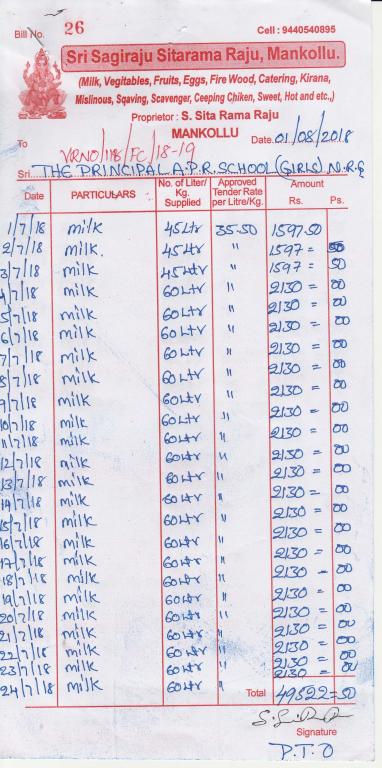 Bill No. 26
Cell : 9440540895
Sri Sagiraju Sitarama Raju, Mankollu.
(Milk, Vegitables, Fruits, Eggs, Fire Wood, Catering, Kirana,
Mislinous, Sqaving, Scavenger, Ceeping Chiken, Sweet, Hot and etc.,)
Proprietor : S. Sita Rama Raju
MANKOLLU
To Date 01/08/2018
VRNO/118/FC/18-19
Sri THE PRINCIPAL A.P.R. SCHOOL (GIRLS) N.R.G
Date PARTICULARS No. of Liter/ Kg. Supplied Approved Tender Rate per Litre/Kg. Amount Rs. Ps.
1/7/18 milk 45 Ltr 35.50 1597.50
2/7/18 milk. 45 Ltr " 1597 = 50
3/7/18 milk 45 Ltr " 1597 = 50
4/7/18 milk 60 Ltr " 2130 = 00
5/7/18 milk 60 Ltr " 2130 = 00
6/7/18 milk 60 Ltr " 2130 = 00
7/7/18 milk 60 Ltr " 2130 = 00
8/7/18 milk 60 Ltr " 2130 = 00
9/7/18 milk 60 Ltr " 2130 = 00
10/7/18 milk 60 Ltr " 2130 = 00
11/7/18 milk 60 Ltr " 2130 = 00
12/7/18 milk 60 Ltr " 2130 = 00
13/7/18 milk 60 Ltr " 2130 = 00
14/7/18 milk 60 Ltr " 2130 = 00
15/7/18 milk 60 Ltr " 2130 = 00
16/7/18 milk 60 Ltr " 2130 = 00
17/7/18 milk 60 Ltr " 2130 = 00
18/7/18 milk 60 Ltr " 2130 - 00
19/7/18 milk 60 Ltr " 2130 = 00
20/7/18 milk 60 Ltr " 2130 = 00
21/7/18 milk 60 Ltr " 2130 = 00
22/7/18 milk 60 Ltr " 2130 = 00
23/7/18 milk 60 Ltr " 2130 = 00
24/7/18 milk 60 Ltr " 2130 = 00
Total 49522 = 50
Signature
P.T.O